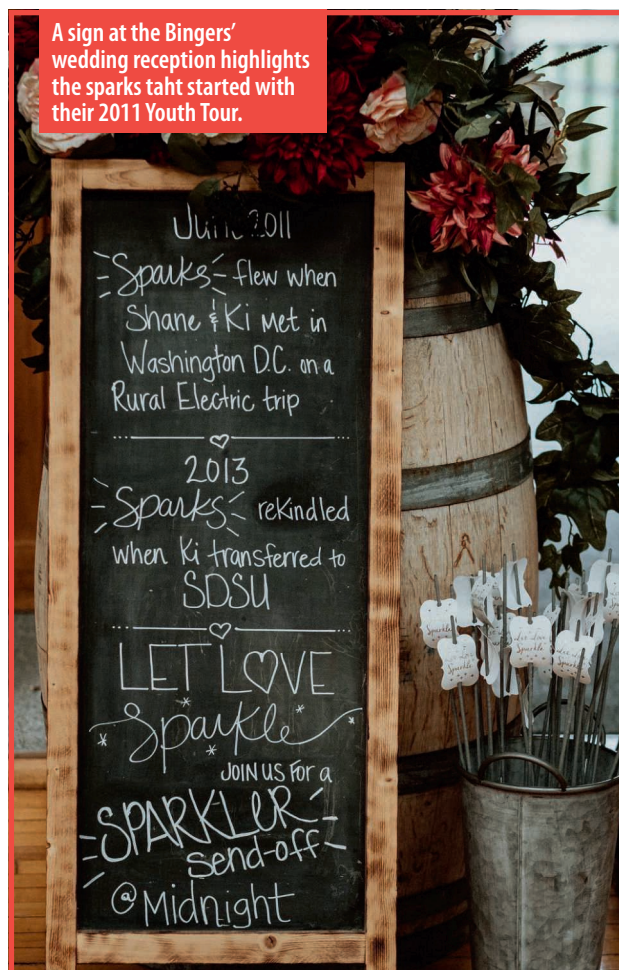 A sign at the Bingers'
wedding reception highlights
the sparks taht started with
their 2011 Youth Tour.
June 2011
Sparks flew when
Shane & Ki Met in
Washington D.C. on a
Rural Electric trip
2013
Sparks rekindled
when Ki transferred to
SDSU
LET LOVE
Sparkle
JOIN US FOR a
SPARKLER
send-off
@ Midnight